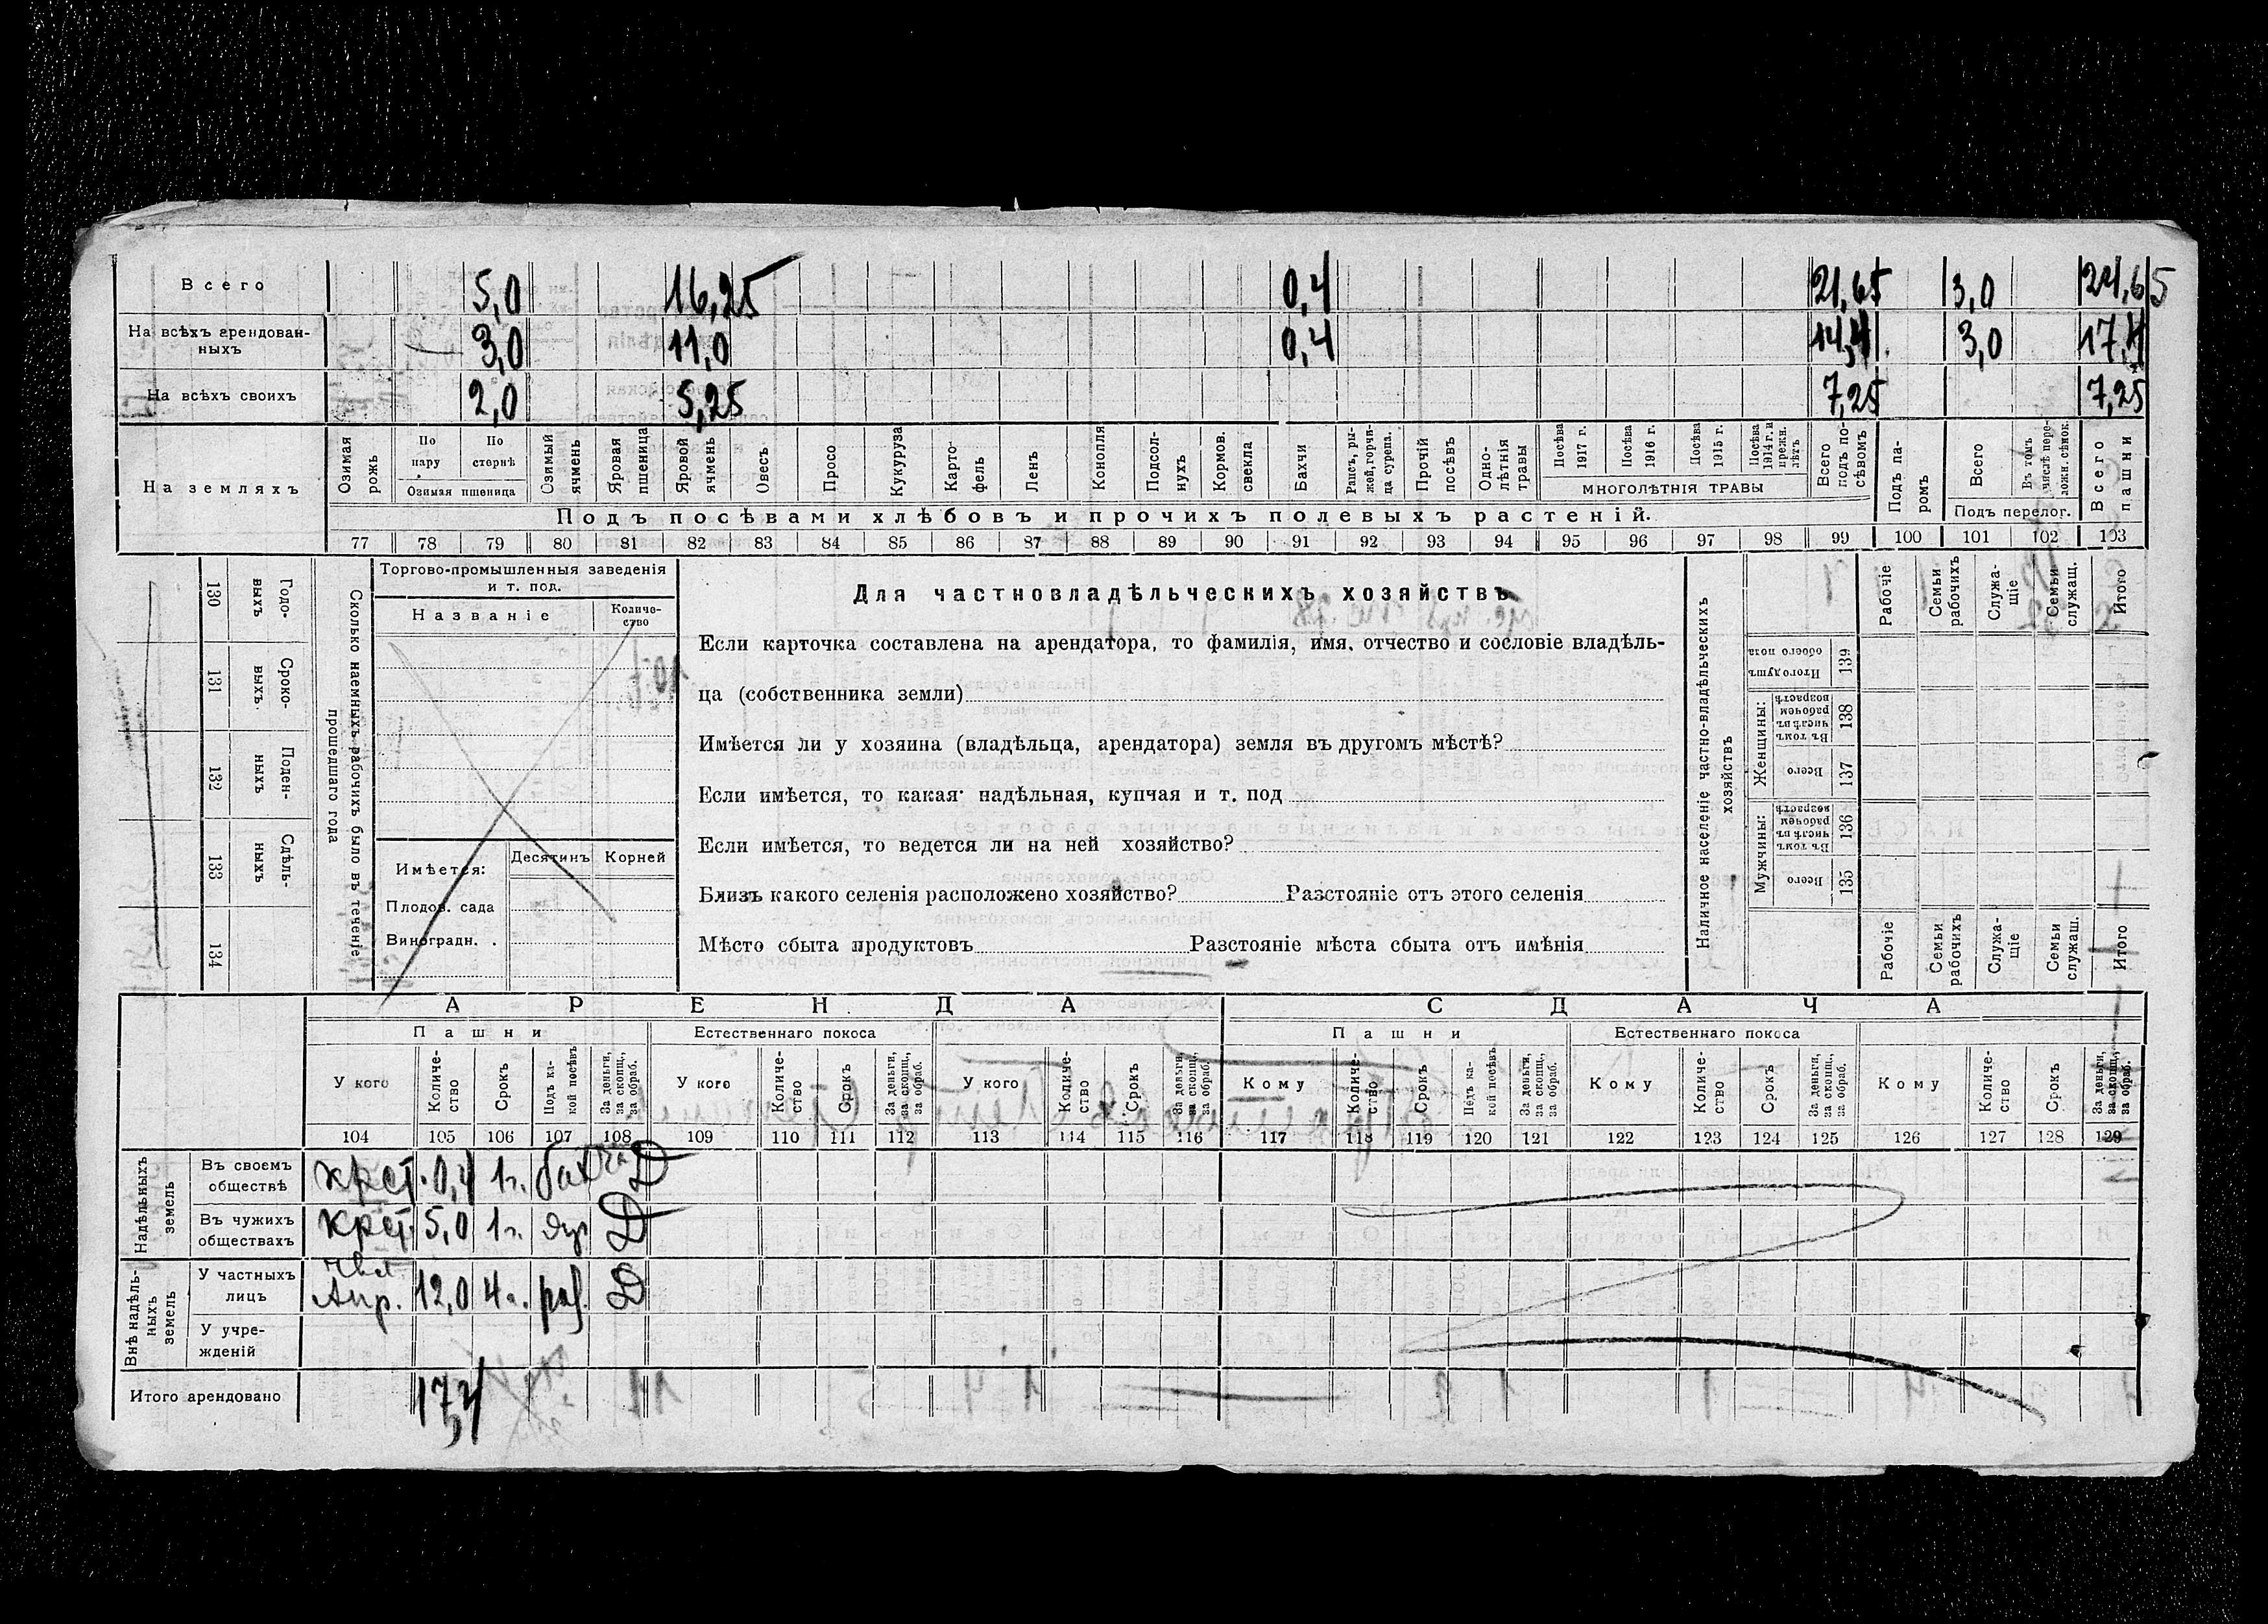 Всего 5,0 16,25 0,4 21,65 3,0 24,65
На всѣхъ арендован-
ныхъ 3,0 11,0 0,4 14,4 3,0 17,4
На всѣхъ своихъ 2,0 5,25 7,25 7,25
На земляхъ
Озимая рожь
По пару
По стернѣ
Озимая пшеница
Озимый ячмень
Яровая пшеница
Яровой ячмень
Овесъ
Просо
Кукуруза
Карто-
фель
Ленъ
Конопля
Подсол-
нухъ
Кормов. свекла
Бахчи
Рапсъ, ры-
жей, горчи-
ца сурепа.
Прочій посѣвъ
Одно-
лѣтнія травы
Посѣва 1917 г.
Посѣва 1916 г.
Посѣва 1915 г.
Посѣва 1914 г. и прежн. лѣтъ
многолѣтнія травы
Всего подъ по-
сѣвомъ
Подъ па-
ромъ
Всего
Въ томъ числѣ пере-
ложн. сѣнок.
Подъ перелог.
Всего пашни
Подъ посѣвами хлѣбовъ и прочихъ полевыхъ растеній.
77 78 79 80 81 82 83 84 85 86 87 88 89 90 91 92 93 94 95 96 97 98 99 100 101 102 103
Сколько наемныхъ рабочихъ было въ теченіе
прошедшаго года
Годо-
выхъ 130
Сроко-
выхъ 131
Поден-
ныхъ 132
Сдѣль-
ныхъ 133
134
Торгово-промышленныя заведенія
и т. под.
Названіе
Количе-
ство
Имѣется: Десятинъ Корней
Плодов. сада
Виноградн. .
Для частновладѣльческихъ хозяйствъ
Если карточка составлена на арендатора, то фамилія, имя, отчество и сословіе владѣль-
ца (собственника земли)
Имѣется ли у хозяина (владѣльца, арендатора) земля въ другомъ мѣстѣ?
Если имѣется, то какая: надѣльная, купчая и т. под
Если имѣется, то ведется ли на ней хозяйство?
Близъ какого селенія расположено хозяйство? Разстояніе отъ этого селенія
Мѣсто сбыта продуктовъ Разстояніе мѣста сбыта отъ имѣнія
Наличное населеніе частно-владѣльческихъ
хозяйствъ
Рабочіе
Семьи рабочихъ
Служа-
щіе
Семьи служащ.
Итого
Итого душъ обоего пола 139
Женщины:
Въ томъ числѣ въ рабочемъ возрастѣ 138
Всего 137
Мужчины:
Въ томъ числѣ въ рабочемъ возрастѣ 136
Всего 135
Рабочіе
Семьи рабочихъ
Служа-
щіе
Семьи служащ.
Итого
АРЕНДА СДАЧА
Пашни Естественнаго покоса Пашни Естественнаго покоса
У кого
Количе-
ство
Срокъ
Подъ ка-
кой посѣвъ
За деньги, за скопщ., за обраб.
У кого
Количе-
ство
Срокъ
За деньги, за скопщ., за обраб.
У кого
Количе-
ство
Срокъ
За деньги, за скопщ., за обраб.
Кому
Количе-
ство
Срокъ
Подъ ка-
кой посѣвъ
За деньги, за скопщ., за обраб.
Кому
Количе-
ство
Срокъ
За деньги, за скопщ., за обраб.
Кому
Количе-
ство
Срокъ
За деньги, за скопщ., за обраб.
104 105 106 107 108 109 110 111 112 113 114 115 116 117 118 119 120 121 122 123 124 125 126 127 128 129
Надѣльныхъ земель
Въ своемъ
обществѣ крст. 0,4 1г. бахча Д
Въ чужихъ
обществахъ крст. 5,0 1г. Д
Внѣ надѣль-
ныхъ земель
У частныхъ
лицъ 12,0 4г. Д
У учре-
жденій
Итого арендовано 17,4